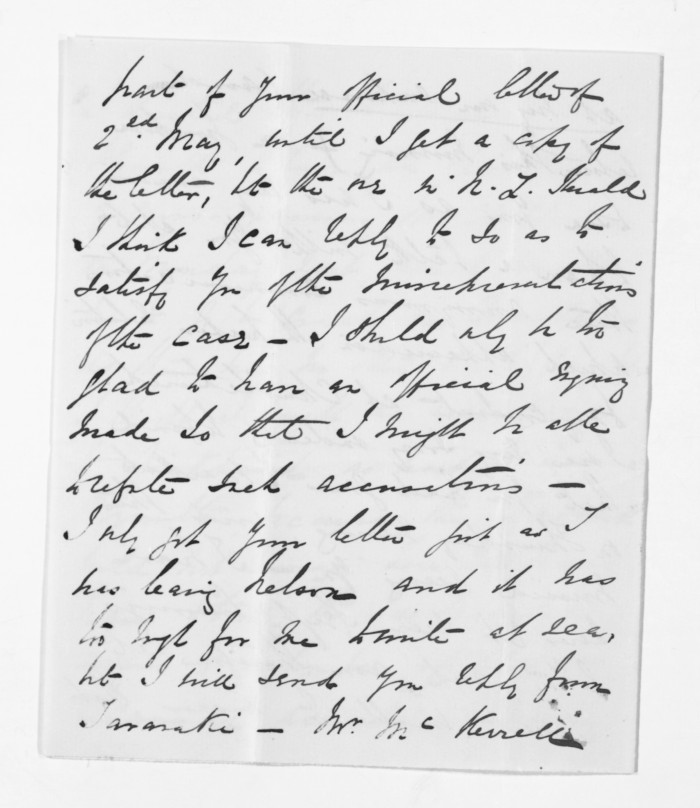 part of your official letter of
2nd May, until I get a copy of
the letter, but the one in N. Z. Herald
I think I can reply to so as to
satisfy you of the misrepresentations
of the case - I should only be too
glad to have an official enquiry
made so that I might be able
to refute such accusations -
I only got your letter just as I
was leaving Nelson and it was
too rough for me to write at sea,
but I will send you reply from
Taranaki - Mr. Mc Kerrell